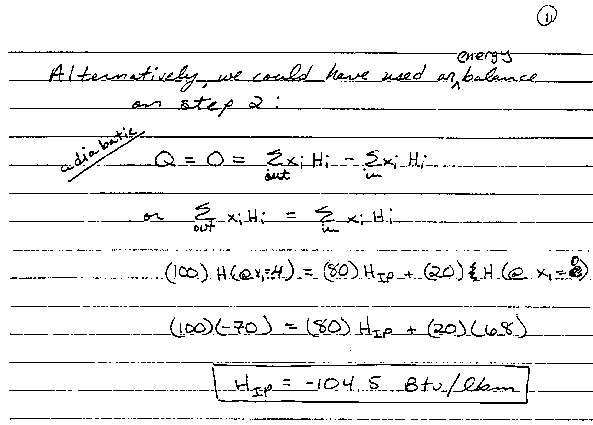 11
Alternatively, we could have used an energy balance
on step 2:
adiabatic
Q = 0 = Σ xi Hi - Σ xi Hi
out in
or Σ xi Hi = Σ xi Hi
out in
(100) H(@x1=.4) = (80) HIP + (20) H(@ x1=0)
(100)(-70) = (80) HIP + (20)(68)
HIP = -104.5 Btu/lbm